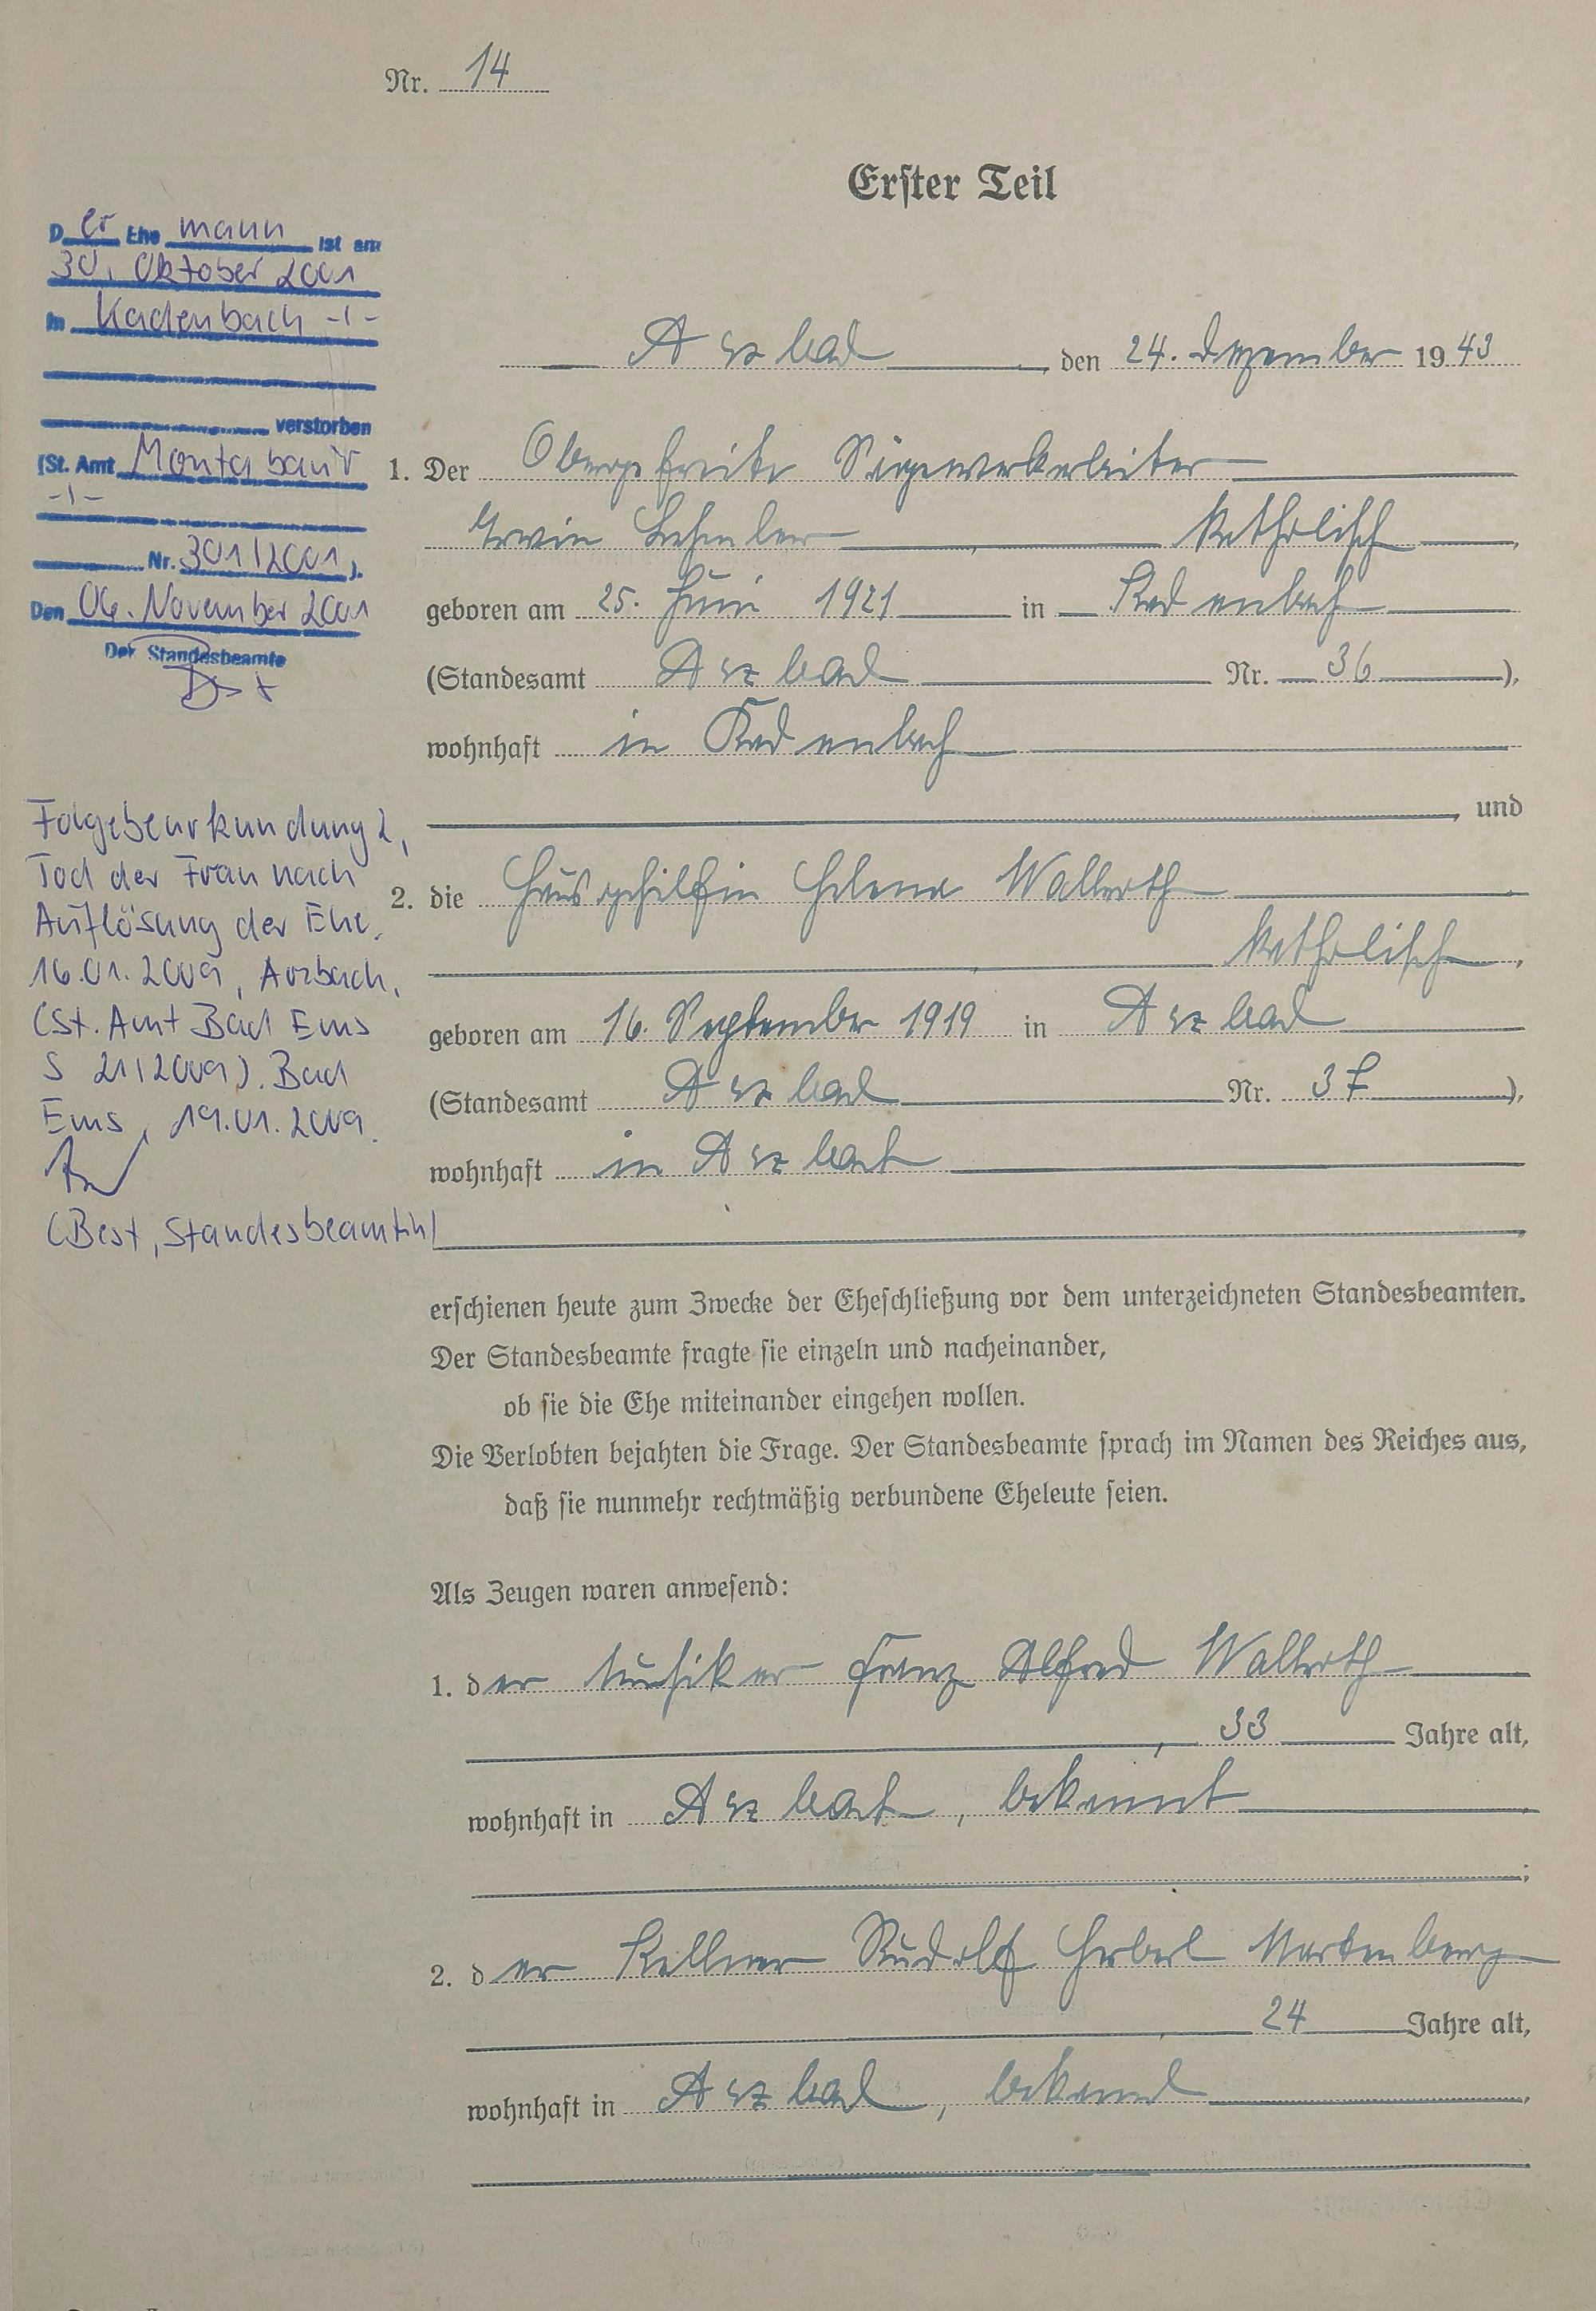 Nr. 14
Erster Teil
Der Ehe mann ist am
30. Oktober 2001
in Kadenbach -/-
verstorben
(St. Amt Montabaur
-/-
Nr. 301/2001).
Den 06. November 2001
Der Standesbeamte
Folgebeurkundung 2,
Tod der Frau nach
Auflösung der Ehe,
16.01.2009, Arzbach,
(St. Amt Bad Ems
S 21/2009). Bad
Ems, 19.01.2009.
(Best, Standesbeamtin)
Arzbach, den 24. Dezember 1943
1. Der Obergefreite Sägewerkarbeiter
Erwin katholisch,
geboren am 25. Juni 1921 in Kadenbach
(Standesamt Arzbach Nr. 36),
wohnhaft in Kadenbach
, und
2. die Hausgehilfin Helena Wallroth
katholisch,
geboren am 16. September 1919 in Arzbach
(Standesamt Arzbach Nr. 37),
wohnhaft in Arzbach
erschienen heute zum Zwecke der Eheschließung vor dem unterzeichneten Standesbeamten.
Der Standesbeamte fragte sie einzeln und nacheinander,
ob sie die Ehe miteinander eingehen wollen.
Die Verlobten bejahten die Frage. Der Standesbeamte sprach im Namen des Reiches aus,
daß sie nunmehr rechtmäßig verbundene Eheleute seien.
Als Zeugen waren anwesend:
1. der Musiker Franz Alfred Wallroth
, 33 Jahre alt,
wohnhaft in Arzbach, bekannt
;
2. der Kellner Rudolf Herbert Martenberg
24 Jahre alt,
wohnhaft in Arzbach, bekannt,